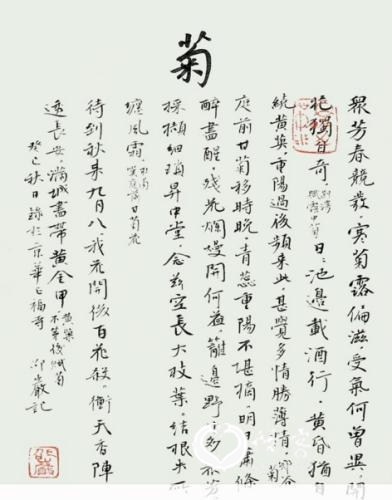 菊
眾芳春競發寒菊露偏滋受氣何曾異開
花獨自奇 賦露中菊 日日池邊載酒行黃昏猶自
繞黃英重陽過後頻來此甚覺多情勝薄情 鄭谷 菊
庭前甘菊移時晚青蕊重陽不堪摘明日蕭條
醉盡醒殘花爛熳開何益籬邊野外多眾芳
採擷細瑣昇中堂念茲空長大枝葉結根失所
纏風霜 杜甫 嘆庭前甘菊花
待到秋來九月八我花開後百花殺衝天香陣
透長安滿城盡帶黃金甲 黃巢 不第後賦菊
癸巳秋日錄於京華正福寺